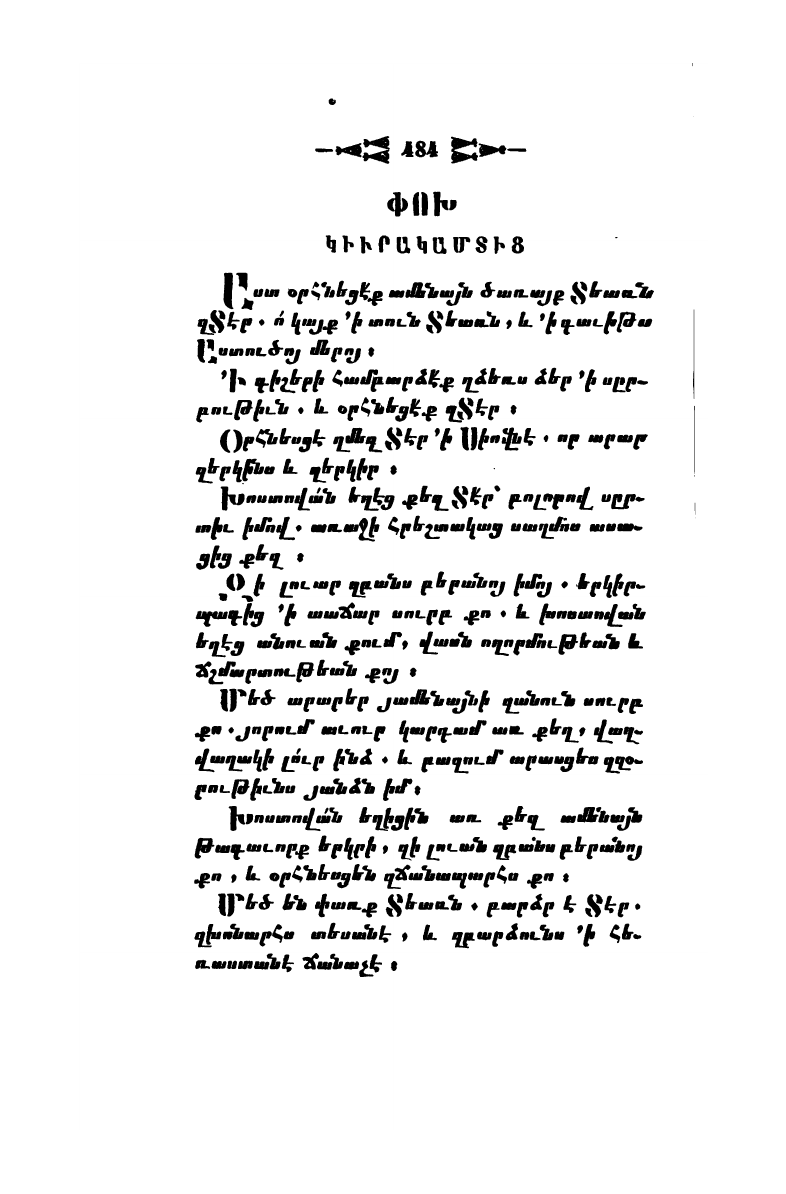 484
ՓՈԽ
ԿԻՒՐԱԿԱՄՏԻՑ
Աստ օրհնեցէք ամենայն ծառայք Տեառն
զՏէր. ո՛ կայք ՚ի տուն Տեառն, և ՚ի գաւիթս
Աստուծոյ մերոյ։
՚Ի գիշերի համբարձէք զձեռս ձեր ՚ի սըր֊
բութիւն. և օրհնեցէք զՏէր։
Օրհնեսցէ զմեզ Տէր ՚ի Սիովնէ. որ արար
զերկինս և զերկիր։
Խոստովան եղէց քեզ Տէր՝ բոլորով սըր֊
տիւ իմով. առաջի հրեշտակաց սաղմոս ասա֊
ցից քեզ։
Զի լուար զբանս բերանոյ իմոյ. երկիր֊
պագից ՚ի տաճար սուրբ քո. և խոստովան
եղէց անուան քում, վասն ողորմութեան և
ճշմարտութեան քոյ։
Մեծ արարեր յամենայնի զանուն սուրբ
քո. յորում աւուր կարդամ առ քեզ, վաղ֊
վաղակի լո՛ւր ինձ. և բազում արասցես զզօ֊
րութիւնս յանձն իմ։
Խոստովան եղիցին առ քեզ ամենայն
թագաւորք երկրի, զի լուան զբանս բերանոյ
քո, և օրհնեսցեն զճանապարհս քո։
Մեծ են փառք Տեառն. բարձր է Տէր.
զխոնարհս տեսանէ, և զբարձունս ՚ի հե֊
ռաստանէ ճանաչէ։